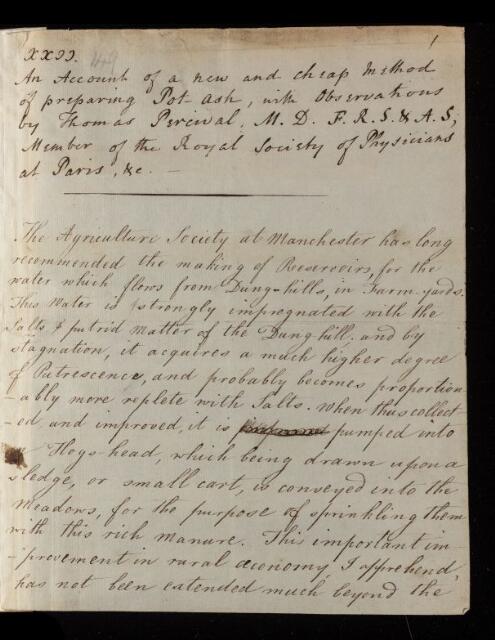 1
XXII. 149
An Account of a new and cheap Method
of preparing Pot-Ash, with Observations
by Thomas Percival, M. D. F. R. S. & A. S,
Member of the Royal Society of Physicians
at Paris, &c. —
The Agriculture Society at Manchester has long
recommended the making of Reservoirs, for the
water which flows from Dung-hills, in Farm-yards.
This Water is strongly impregnated with the
Salts & putrid matter of the Dung-hill. and by
stagnation, it acquires a much higher degree
of Putrescence, and probably becomes proportion
-ably more replete with Salts. When thus collect-
-ed and improved, it is pumped into
Hogs-head, which being drawn upon a
sledge, or small cart, is conveyed into the
Meadows, for the purpose of sprinkling them
with this rich manure. This important im-
-provement in rural œconomy I apprehend
has not been extended much beyond the